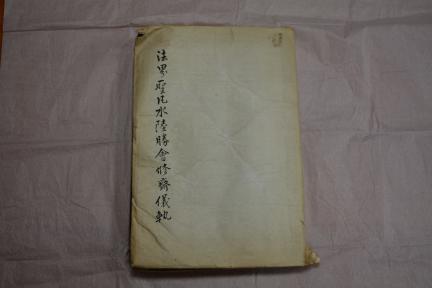 法界聖凡水陸勝會修齋儀軌